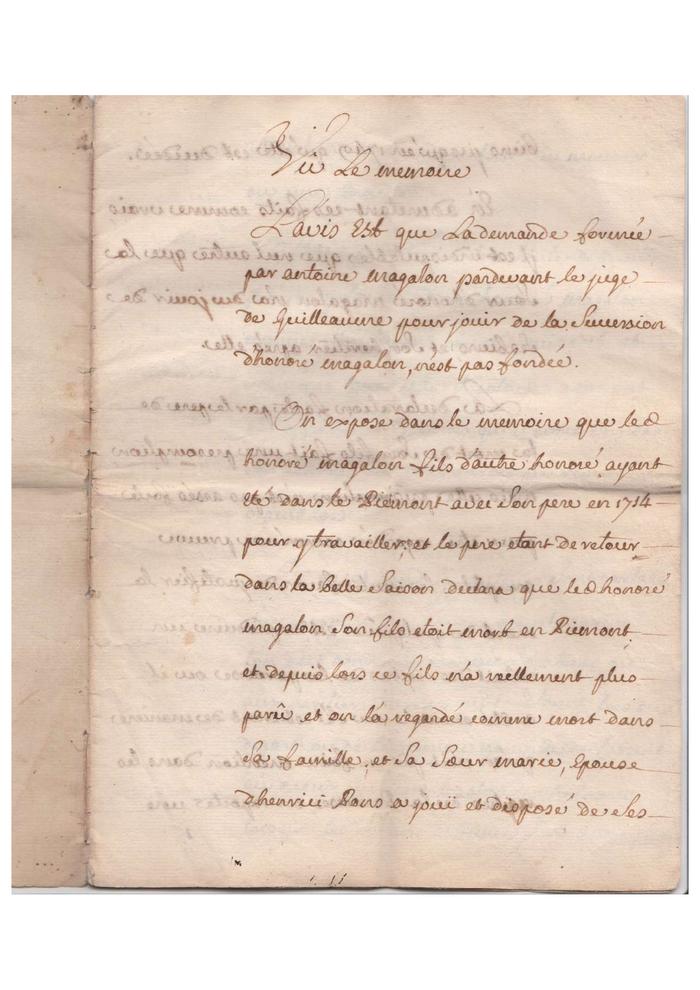 Vû Le memoire
L'avis Est que La demande formée
par antoine magalon pardevant le juge
de Guilleaume pour jouir de la Succession
d'honoré magalon, n'est pas fondée.
On expose dans le memoire que led
honoré magalon fils d'autre honoré ayant
été dans le Piemont avec Son pere en 1714
pour y travailler, et le pere etant de retour
dans la belle Saison declara que led honoré
magalon Son fils etoit mort en Piemont
et depuis lors ce fils n'a reellement plus
parû et on l'a regardé comme mort dans
Sa famille, et Sa Sœur marie, Epouse
d'henrici Pons a joui et disposé de Ses